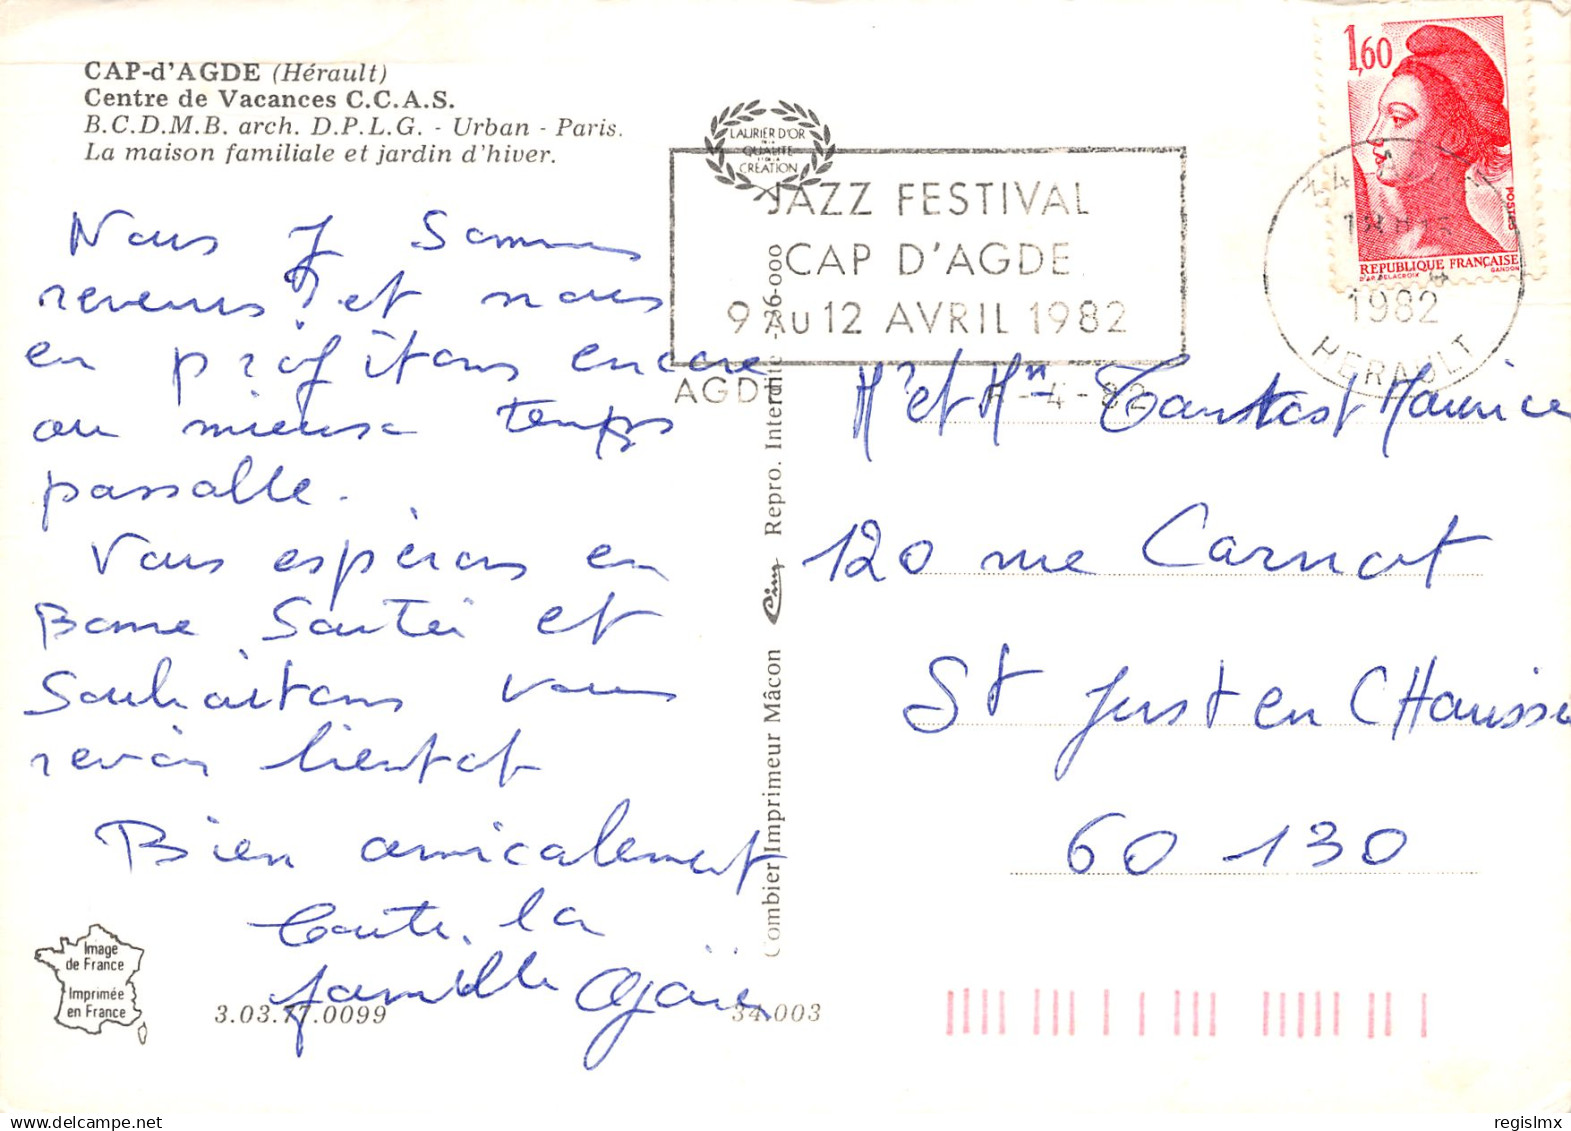 CAP-d'AGDE (Hérault)
Centre de Vacances C.C.A.S.
B.C.D.M.B. arch. D.P.L.G. - Urban - Paris.
La maison familiale et jardin d'hiver.
Nous y sommes
revenus! et nous
en profitons encore
au mieux temps
passable.
Vous espérons en
Bonne Santé et
Souhaitons vous
revoir bientot
Bien amicalement
Toute la
famille
Image
de France
Imprimée
en France
3.03.77.0099
34.003
Combier Imprimeur Mâcon Cim Repro. Interdite - 26-000
LAURIER D'OR
DE LA
QUALITÉ
CRÉATION
JAZZ FESTIVAL
CAP D'AGDE
9 AU 12 AVRIL 1982
AGDE -4-82
1,60
POSTES
RÉPUBLIQUE FRANÇAISE
D'AP. DELACROIX GANDON
34
1982
HERAULT
Mr et Mme Maurice
120 rue Carnot
St Just en CHaussée
60 130
regislmx